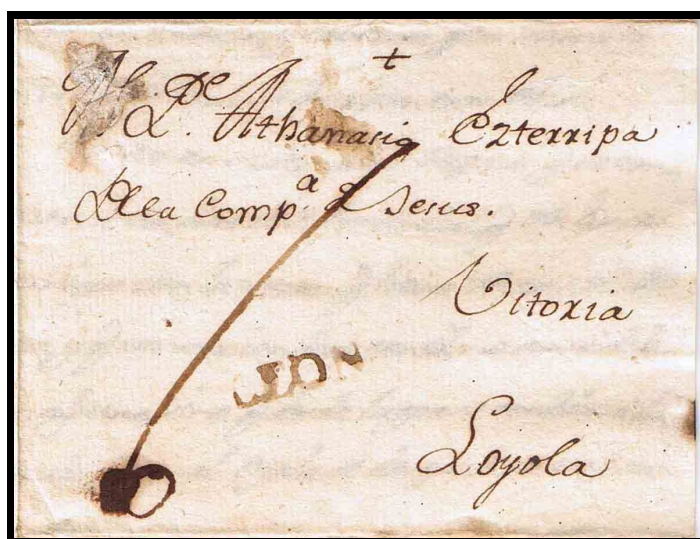 +
Al P.e Athanasio Ezterripa
Dela Comp.a d Jesus.
Vitoria
Loyola